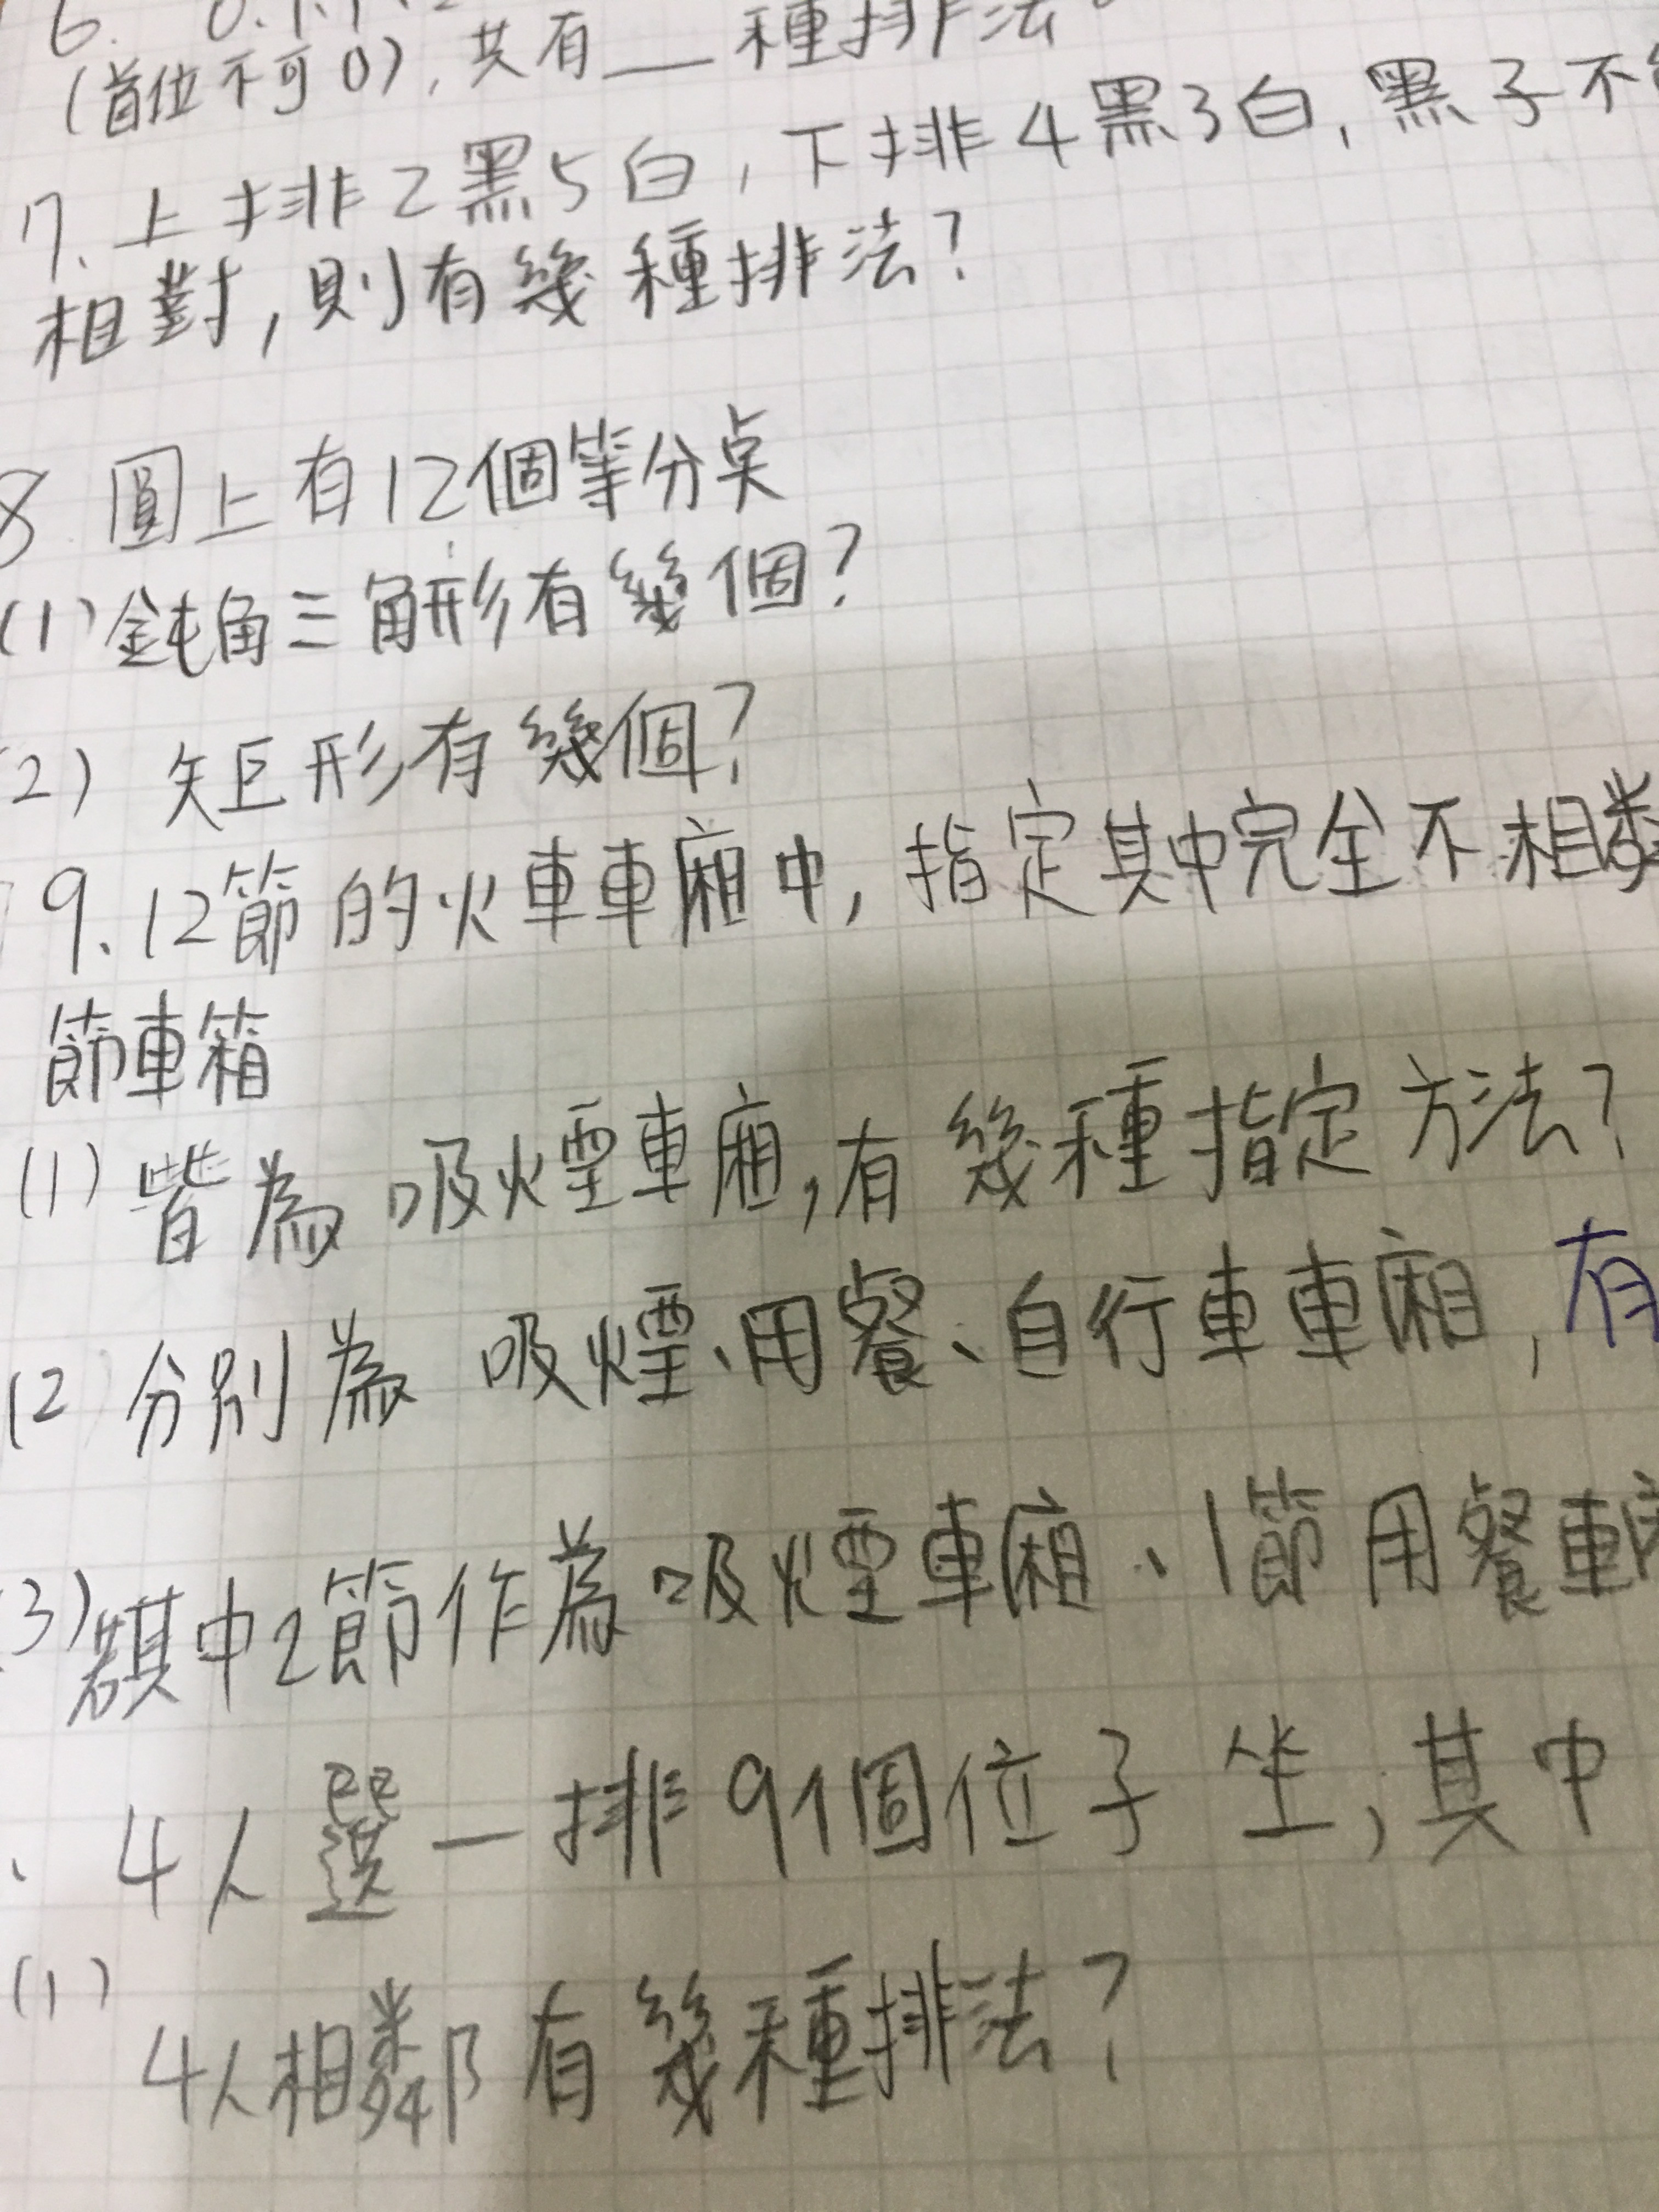 6.
(首位不可0),共有__種排法
7.上排2黑5白,下排4黑3白,黑子不
相對,則有幾種排法?
8 圓上有12個等分点
(1)鈍角三角形有幾個?
(2) 矩形有幾個?
9.12節的火車車廂中,指定其中完全不相
節車箱
(1)皆為吸煙車廂,有幾種指定方法?
(2 分別為 吸煙、用餐、自行車車廂,有
(3)若其中2節作為吸煙車廂、1節用餐車
、4人選一排9個位子坐,其中
(1)
4人相鄰有幾種排法?